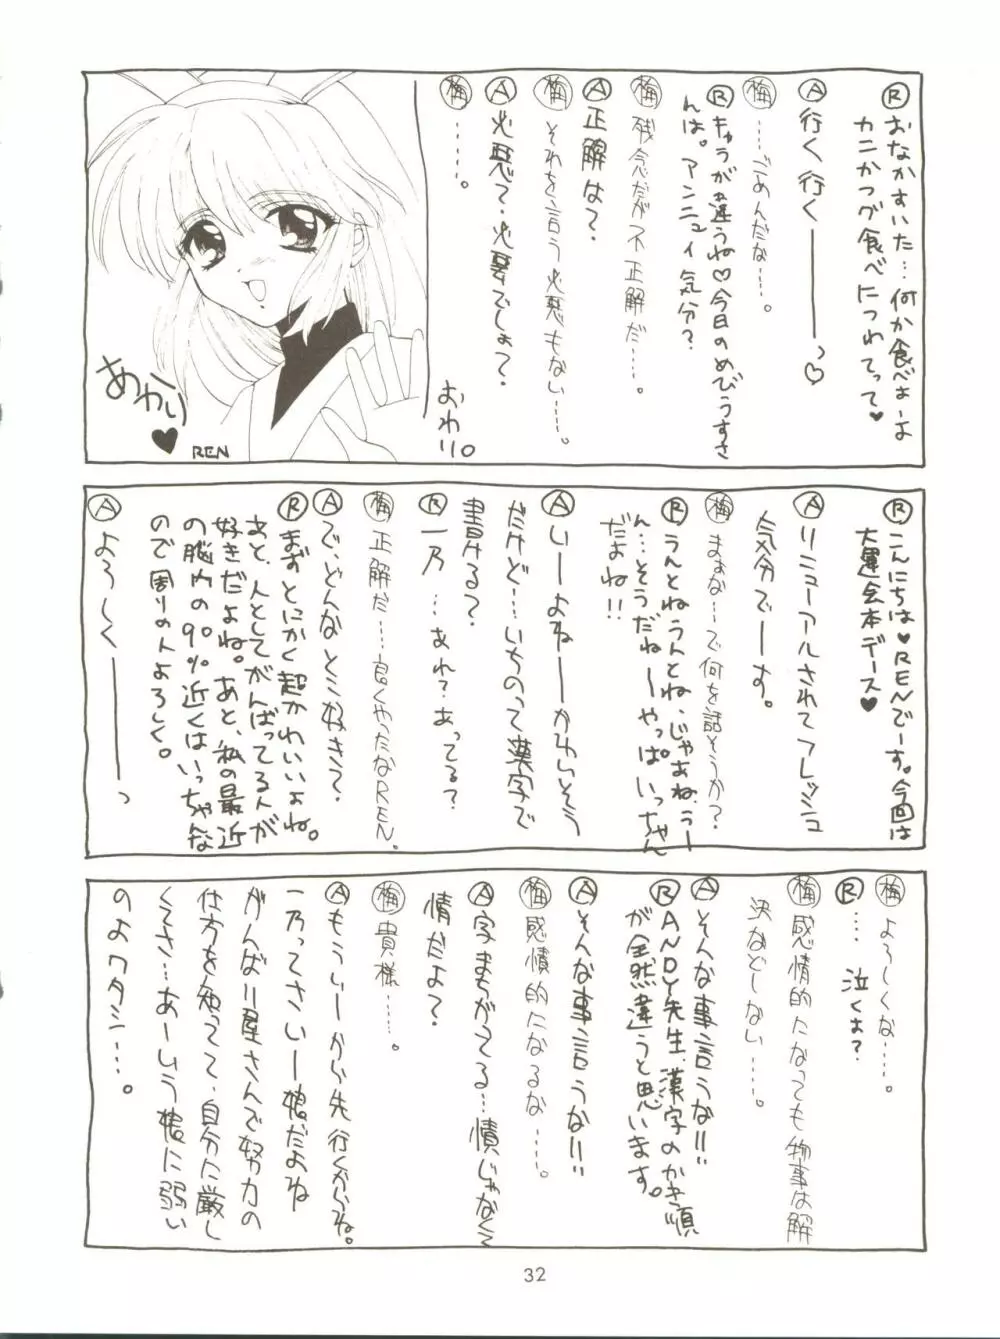 Ⓡおなかすいた…何か食べよーよ
カニかつグ食べにつれてって♥
Ⓐ行く行く―――っ♡
梅……ごめんだな…。
Ⓡきゅうが違うね♡今日のめびうすさ
んは。アンニュイ気分？
梅残念だが不正解だ…。
Ⓐ正解は？
梅それを言う必要もない…。
Ⓐ必悪て・必要でしょ？
梅……。
おわり。
あかり♥
REN
Ⓡこんにちは♥RENでーす。今回は
大運会本デース♥
Ⓐリニューアルされてフレッシュ
気分でーーす。
梅まぁな…で何を話そうか？
Ⓡうんとねうんとね、じゃあね、うー
ん…そうだねーやっぱいっちゃん
だよね!!
Ⓐいーよねーーかわいそう
だけど…いちのって漢字で
書ける？
Ⓡ一乃…あれ？あってる？
梅正解だ…良くやったなREN。
Ⓐで、どんなとこ好き？
Ⓡまずとにかく超かわいいよね。
あと、人としてがんばってる人が
好きだよね。あと、私の最近
の脳内の90%近くはいっちゃんな
ので周りの人よろしく。
Ⓐよろしく―――っ
梅よろしくな…。
Ⓡ…泣くよ？
梅感情的になっても物事は解
決などしない…。
Ⓐそんな事言うな!!
ⓇANDY先生、漢字のかき順
が全然違うと思います。
Ⓐそんな事言うな!!
梅感情的になるな…。
Ⓐ字まちがてる…憤じゃなくて
情だよ？
梅貴様……。
Ⓐもういーから先行くからね。
一乃ってさいー娘だよね
がんばり屋さんで努力の
仕方を知ってて、自分に厳し
くてさ…あーいう娘に弱い
のよワタシ…。
32